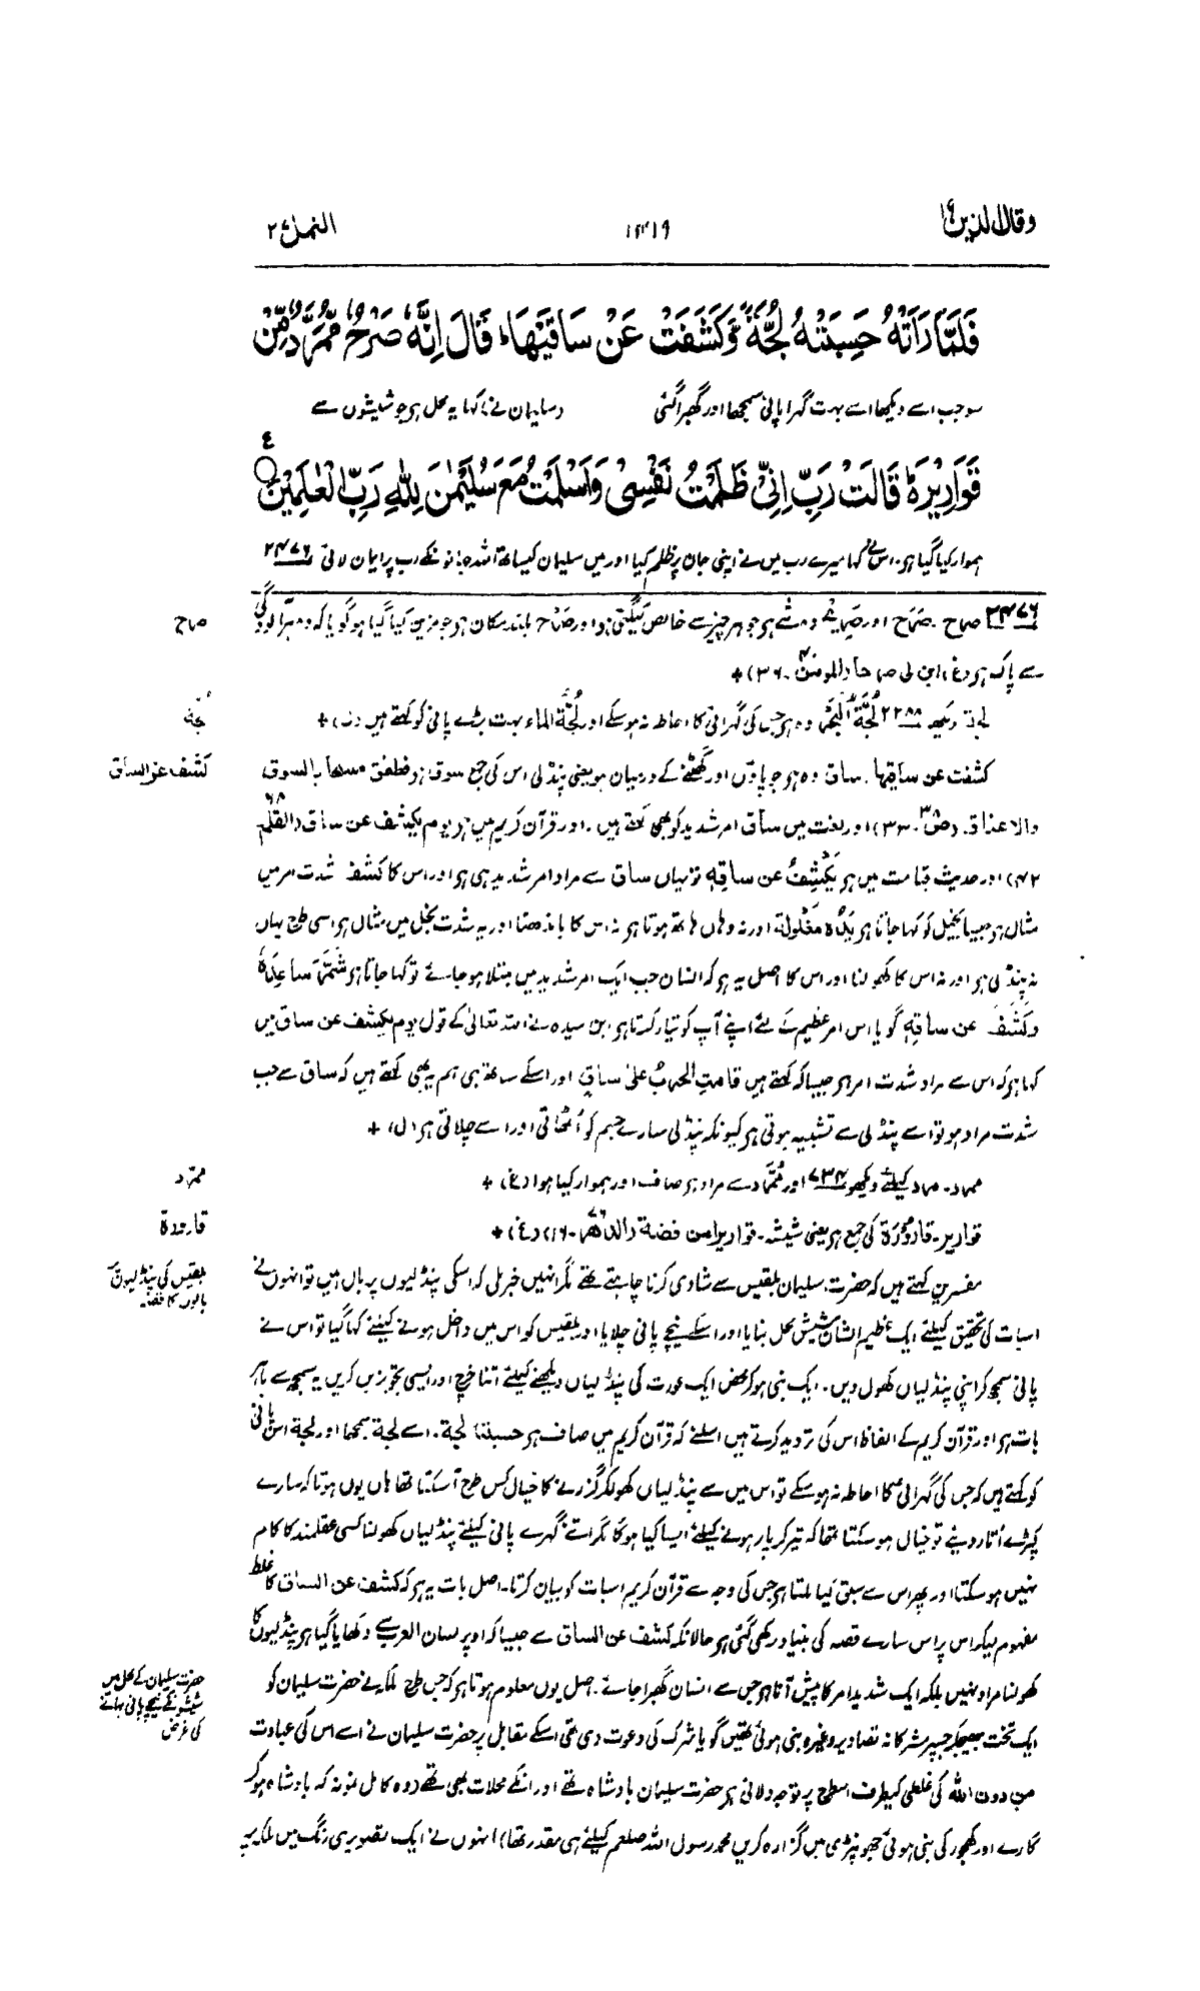 وقال الذین ۱۹
۱۴۱۹
النمل ۲۷
فَلَمَّا رَاَتْهُ حَسِبَتْهُ لُجَّةً وَّكَشَفَتْ عَنْ سَاقَيْهَا ؕ قَالَ اِنَّهٗ صَرْحٌ مُّمَرَّدٌ مِّنْ
سوجب اسے دیکھا اسے بہت گہرا پانی سمجھا اور گھبرا گئی (سلیمان نے) کہا یہ محل ہے جو شیشوں سے
قَوَارِيْرَ ؕ قَالَتْ رَبِّ اِنِّيْ ظَلَمْتُ نَفْسِيْ وَاَسْلَمْتُ مَعَ سُلَيْمٰنَ لِلّٰهِ رَبِّ الْعٰلَمِيْنَ ۧ
ع
ہموار کیا گیا ہے۔ اس نے کہا میرے رب میں نے اپنی جان پر ظلم کیا اور میں سلیمان کیساتھ اللہ جہانونکے رب پر ایمان لائی ۲۴۷۶
صرح
۲۴۷۶ صرح۔ صَرْح اور صَرِیْح وہ شے ہے جو ہر چیز سے خالص
سے پاک ہو (غ) ابن لی صرحا (المومن ۴۰۔ ۳۶) +
لجّة
لجة دیکھو ۲۲۸۸ لُجَّةُ الْبَحْر وہ ہے جس کی گہرائی کا احاطہ نہ ہوسکے اور لُجَّةُ الماء بہت بڑے پانی کو کہتے ہیں (ت) +
کشف عن الساق
کشفت عن ساقیها۔ ساق وہ ہے جو پاؤں اور گھٹنے کے درمیان ہو یعنی پنڈلی اس کی جمع سوق ہے فطفق مسحا بالسوق
والاعناق (صٓ ۳۸۔ ۳۳) اور لغت میں ساق امر شدید کو بھی کہتے ہیں۔ اور قرآن کریم میں ہے یوم یکشف عن ساق (القلم ۶۸
۔ ۴۲) اور حدیث قیامت میں ہے یَکْشِفُ عن ساقِهٖ تو یہاں ساق سے مراد امر شدید ہی ہے اور اس کا کشف شدت امر میں
مثال ہے جیسا بخیل کو کہا جاتا ہے یَدُہٗ مَغْلُولة اور نہ وہاں ہاتھ ہوتا ہے نہ اس کا باندھنا اور یہ شدت بخل میں مثال ہے اسی طرح یہاں
نہ پنڈلی ہے اور نہ اس کا کھولنا اور اس کا اصل یہ ہے کہ انسان جب ایک امر شدید میں مبتلا ہو جائے تو کہا جاتا ہے شَمَّرَ سَاعِدَہٗ
وکَشَفَ عن ساقِهٖ گویا اس امر عظیم کے لئے اپنے آپ کو تیار کرتا ہے ابن سیدہ نے اللہ تعالیٰ کے قول یوم یکشف عن ساق میں
کہا ہے کہ اس سے مراد شدت امر ہے جیسا کہ کہتے ہیں قامتِ الحربُ علی ساقٍ اور اسکے ساتھ ہی ہم یہ بھی کہتے ہیں کہ ساق سے جب
شدت مراد ہو تو اسے پنڈلی سے تشبیہ ہوتی ہے کیونکہ پنڈلی سارے جسم کو اُٹھاتی اور اسے چلاتی ہے (ل) +
ممرّد
ممرد۔ مرد کیلئے دیکھو ۷۳۴ اور مُمَرَّد سے مراد ہے صاف اور ہموار کیا ہوا (غ) +
قارورة
قواریر۔ قارُورَة کی جمع ہے یعنی شیشہ۔ قواریرا من فضة (الدھر ۷۶۔ ۱۶) (غ) +
بلقیس کی پنڈلیوں پر
بالوں کا قصہ۔
مفسرین کہتے ہیں کہ حضرت سلیمان بلقیس سے شادی کرنا چاہتے تھے مگر انہیں خبر ملی کہ اسکی پنڈلیوں پر بال ہیں تو انہوں نے
اسبات کی تحقیق کیلئے ایک عظیم الشان شیش محل بنایا اور اسکے نیچے پانی چلایا اور بلقیس کو اس میں داخل ہونے کیلئے کہا گیا تو اس نے
پانی سمجھ کر اپنی پنڈلیاں کھول دیں۔ ایک نبی ہو کر محض ایک عورت کی پنڈلیاں دیکھنے کیلئے اتنا خرچ اور ایسی تجویز یں کریں یہ سمجھ سے باہر
بات ہے اور قرآن کریم کے الفاظ اس کی تردید کرتے ہیں اسلئے کہ قرآن کریم میں صاف ہے حسبته لجة۔ اسے لجة سمجھا اور لجة اس پانی
کو کہتے ہیں کہ جس کی گہرائی کا احاطہ نہ ہوسکے تو اس میں سے پنڈلیاں کھولکر گزرنے کا خیال کس طرح آسکتا تھا ہاں یوں ہوتا کہ سارے
کپڑے اُتار دیئے تو خیال ہو سکتا تھا کہ تیر کر پار ہونے کیلئے ایسا کیا ہوگا مگر اتنے گہرے پانی کیلئے پنڈلیاں کھولنا کسی عقلمند کا کام
نہیں ہو سکتا اور پھر اس سے سبق کیا ملتا ہے جس کی وجہ سے قرآن کریم اسبات کو بیان کرتا۔ اصل بات یہ ہے کہ کشف عن الساق کا غلط
مفہوم لیکر اس پر اس سارے قصہ کی بنیاد رکھی گئی ہے حالانکہ کشف عن الساق سے جیسا کہ اوپر لسان العرب سے دکھایا گیا ہے پنڈلیوں کا
حضرت سلیمان کے محل میں
شیشونکے نیچے پانی بہانے
کی غرض
کھولنا مراد نہیں بلکہ ایک شدید امر کا پیش آنا ہے جس سے انسان گھبرا جائے۔ اصل یوں معلوم ہوتا ہے کہ جس طرح ملکہ نے حضرت سلیمان کو
ایک تخت بھیجکر جسپر مشرکانہ تصاویر وغیرہ بنی ہوئی تھیں گویا شرک کی دعوت دی تھی اسکے مقابل پر حضرت سلیمان نے اسے اس کی عبادت
من دون اللہ کی غلطی کیطرف اسطرح پر توجہ دلائی ہے حضرت سلیمان بادشاہ تھے اور انکے محلات بھی تھے (وہ کامل نمونہ کہ بادشاہ ہو کر
گارے اور کھجور کی بنی ہوئی جھونپڑی میں گزارہ کریں محمد رسول اللہ صلعم کیلئے ہی مقدر تھا) انہوں نے ایک تصویری رنگ میں ملکہ پر